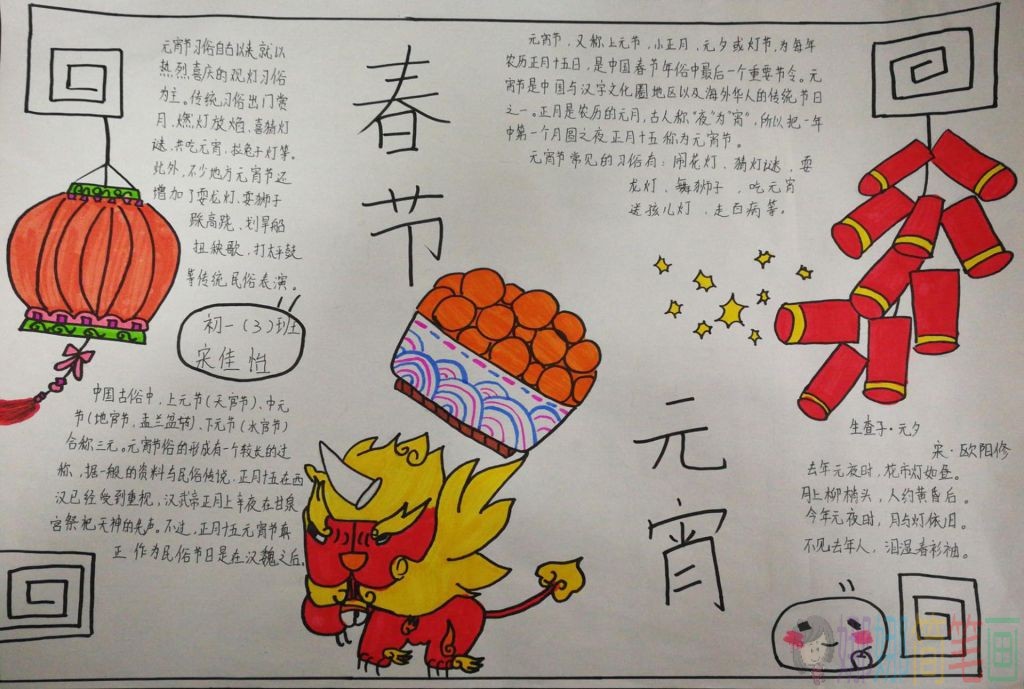 元宵节习俗自古以来就以
热烈喜庆的观灯习俗
为主。传统习俗出门赏
月、燃灯放焰、喜猜灯
谜、共吃元宵、拉兔子灯等。
此外，不少地方元宵节还
增加了耍龙灯、耍狮子
踩高跷、划旱船
扭秧歌、打太平鼓
等传统民俗表演。
春节
元宵节，又称上元节，小正月，元夕或灯节，为每年
农历正月十五日，是中国春节年俗中最后一个重要节令。元
宵节是中国与汉字文化圈地区以及海外华人的传统节日
之一。正月是农历的元月，古人称"夜"为"宵"，所以把一年
中第一个月圆之夜正月十五称为元宵节。
元宵节常见的习俗有：闹花灯、猜灯谜、耍
龙灯、舞狮子、吃元宵
送孩儿灯、走百病等。
初一（3）班
宋佳怡
中国古俗中，上元节（天官节）、中元
节（地官节、盂兰盆节）、下元节（水官节）
合称三元。元宵节俗的形成有一个较长的过
称，据一般的资料与民俗传说，正月十五在西
汉已经受到重视，汉武帝正月上辛夜在甘泉
宫祭祀天神的先声。不过，正月十五元宵节真
正作为民俗节日是在汉魏之后。
元宵
生查子·元夕
宋·欧阳修
去年元夜时，花市灯如昼。
月上柳梢头，人约黄昏后。
今年元夜时，月与灯依旧。
不见去年人，泪湿春衫袖。
简笔画